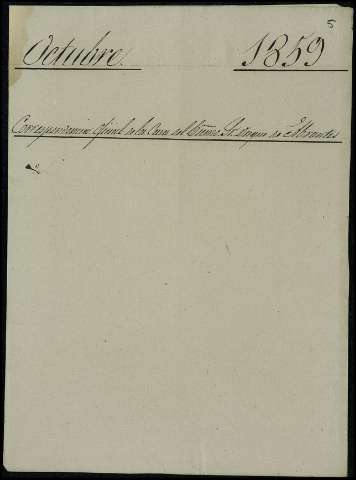 5
Octubre. 1859
Correspondencia oficial de la Casa del Excmo. Sr. Duque de Abrantes